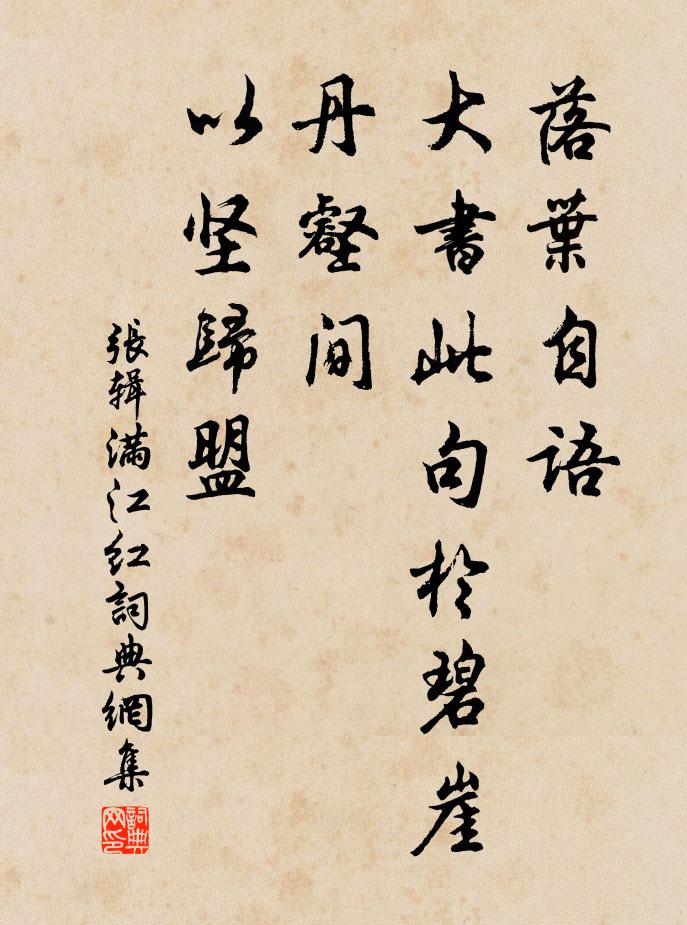 落葉自語
大書此句於碧崖
丹壑间
以坚歸盟
張辑满江红詞典網集
詞典网印